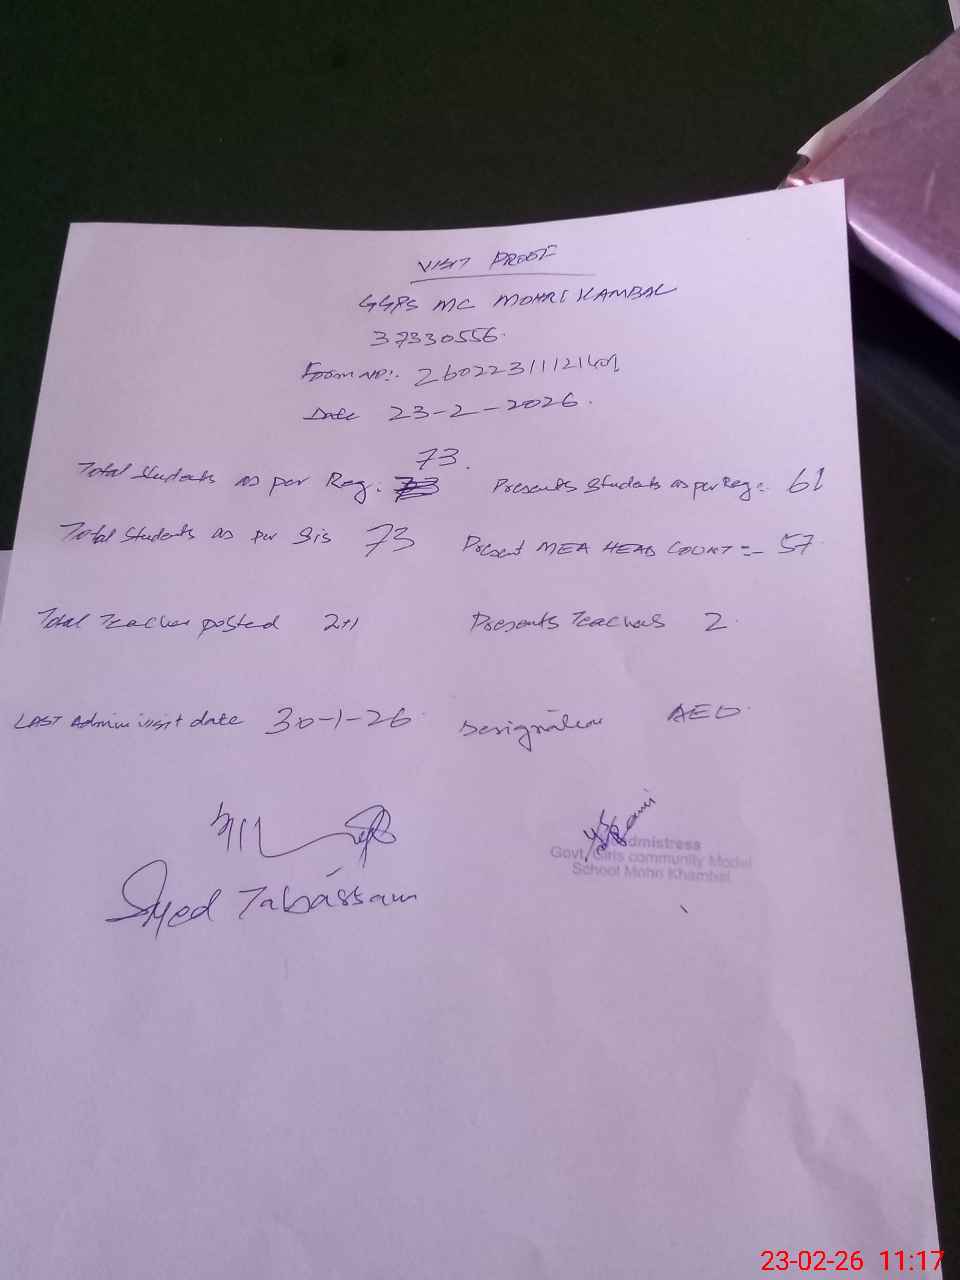 VISIT PROOF
GGPS MC MOHRI KAMBAL
37330556
Form No:. 260223111121401
Date 23-2-2026.
73.
Total Students as per Reg:. Presents Students as per Reg:. 61
Total Students as per Sis 73 Present MEA HEAD COUNT =- 57
Total Teacher posted 2+1 Presents Teachers 2.
LAST Admin visit date 30-1-26 Designation AEO.
Syed Tabassam
dmistress
Govt. Girls community Model
School Mohri Khambal
23-02-26 11:17